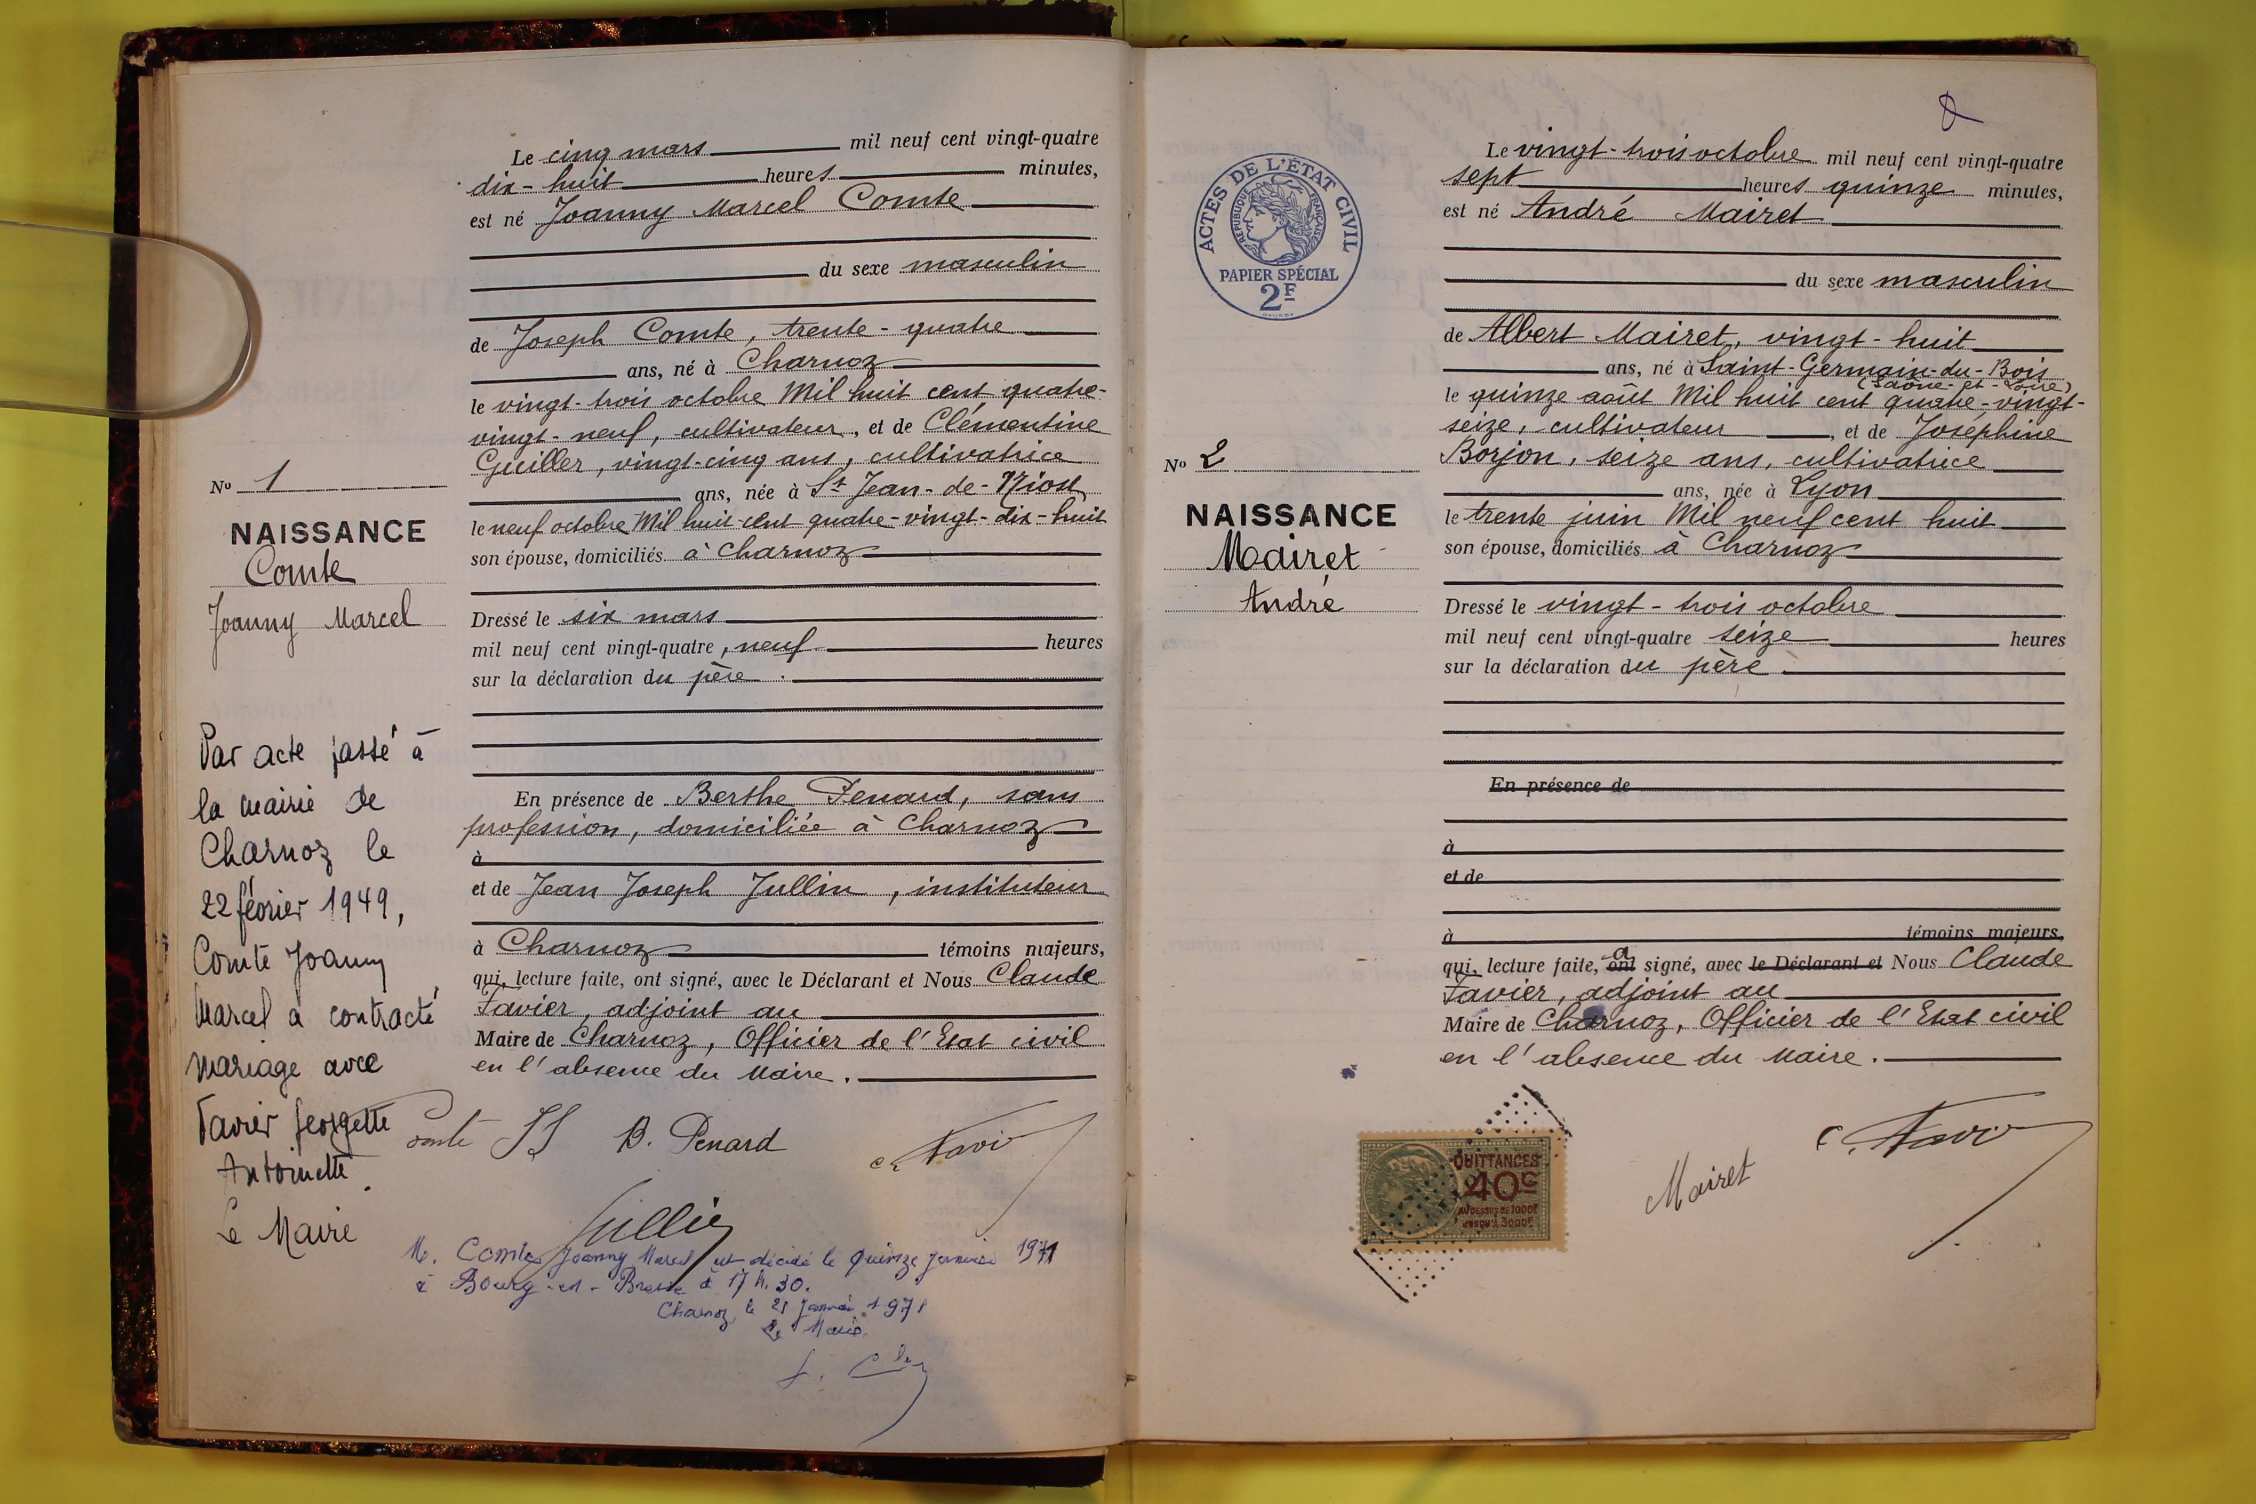 Le cinq mars mil neuf cent vingt-quatre
dix-huit heures minutes,
est né Joanny Marcel Comte
du sexe masculin
de Joseph Comte, trente-quatre
ans, né à Charnoz
le vingt-trois octobre Mil huit cent quatre-
vingt-neuf, cultivateur, et de Clémentine
Guiller, vingt-cinq ans, cultivatrice
ans, née à St Jean-de-Niost
le neuf octobre Mil huit-cent quatre-vingt-dix-huit
son épouse, domiciliés à Charnoz
Dressé le six mars
mil neuf cent vingt-quatre, neuf heures
sur la déclaration du père.
En présence de Berthe Penard, sans
profession, domiciliée à Charnoz
à
et de Jean Joseph Jullin, instituteur
à Charnoz témoins majeurs,
qui, lecture faite, ont signé, avec le Déclarant et Nous Claude
Favier, adjoint au
Maire de Charnoz, Officier de l'Etat civil
en l'absence du Maire.
No 1
NAISSANCE
Comte
Joanny Marcel
Par acte passé à
la mairie de
Charnoz le
22 février 1949,
Comte Joanny
Marcel a contracté
mariage avec
Favier Georgette
Antoinette.
Le Maire
Comte JJ B. Penard C. Favier
Jullin
M. Comte Joanny Marcel est décédé le quinze janvier 1971
à Bourg-en-Bresse à 17 h. 30.
Charnoz, le 21 Janvier 1971
Le Maire.
ACTES DE L'ÉTAT CIVIL
RÉPUBLIQUE FRANÇAISE
PAPIER SPÉCIAL
2F
No 2
NAISSANCE
Mairet
André
Le vingt-trois octobre mil neuf cent vingt-quatre
sept heures quinze minutes,
est né André Mairet
du sexe masculin
de Albert Mairet, vingt-huit
ans, né à Saint-Germain-du-Bois
(Saône-et-Loire)
le quinze août Mil huit cent quatre-vingt-
seize, cultivateur, et de Joséphine
Borjon, seize ans, cultivatrice
ans, née à Lyon
le trente juin Mil neuf cent huit
son épouse, domiciliés à Charnoz
Dressé le vingt-trois octobre
mil neuf cent vingt-quatre seize heures
sur la déclaration du père.
En présence de
à
et de
à témoins majeurs,
qui, lecture faite, ont a signé, avec le Déclarant et Nous Claude
Favier, adjoint au
Maire de Charnoz, Officier de l'Etat civil
en l'absence du Maire.
QUITTANCES
40c
AU DESSUS DE 1000F
JUSQU'À 3000F
Mairet
C. Favier